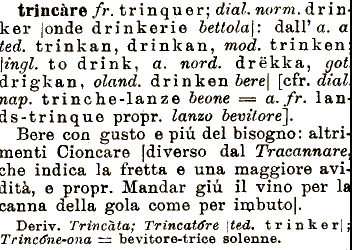 trincàre fr. trinquer; dial. norm. drin-
ker [onde drinkerie bettola]: dall' a. a
ted. trinkan, drinkan, mod. trinken
[ingl. to drink, a. nord. drëkka, got
drigkan, oland. drinken bere] [cfr. dial.
nap. trinche-lanze beone = a. fr. lan-
ds-trinque propr. lanzo bevitore].
Bere con gusto e piú del bisogno: altri-
menti Cioncare [diverso dal Tracannare,
che indica la fretta e una maggiore avi-
dità, e propr. Mandar giú il vino per la
canna della gola come per imbuto].
Deriv. Trincàta; Trincatóre [ted. trinker];
Trincóne-ona = bevitore-trice solenne.